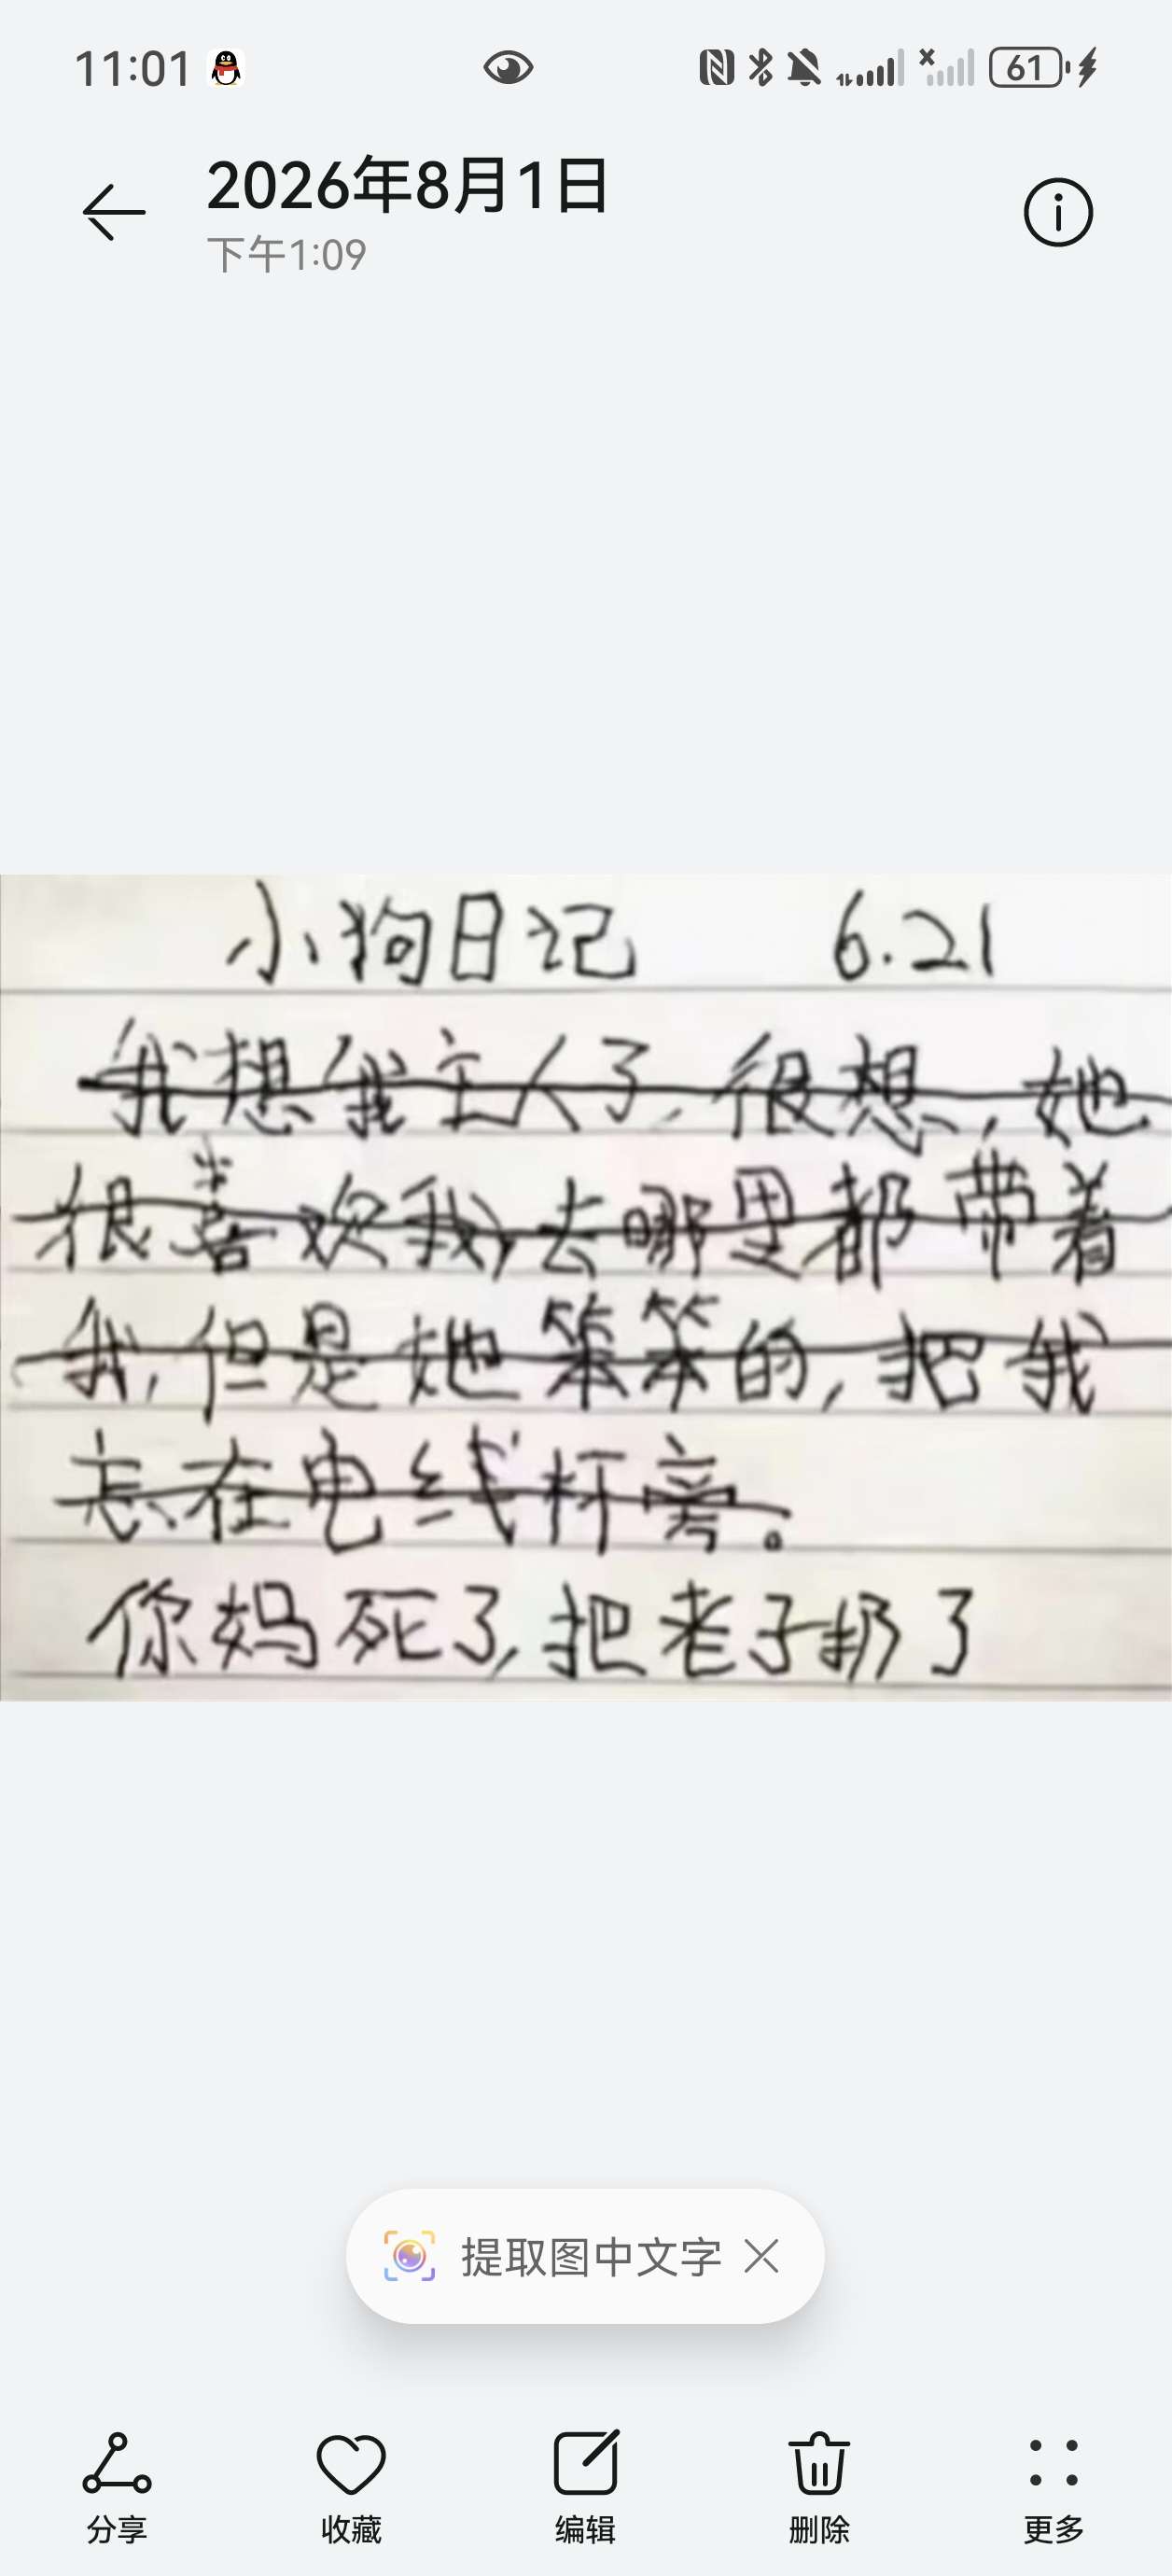 11:01
61
2026年8月1日
下午1:09
小狗日记 6.21
我想我主人了,很想,她
很喜欢我,去哪里都带着
我,但是她笨笨的,把我
忘在电线杆旁。
你妈死了,把老子扔了
提取图中文字
分享 收藏 编辑 删除 更多